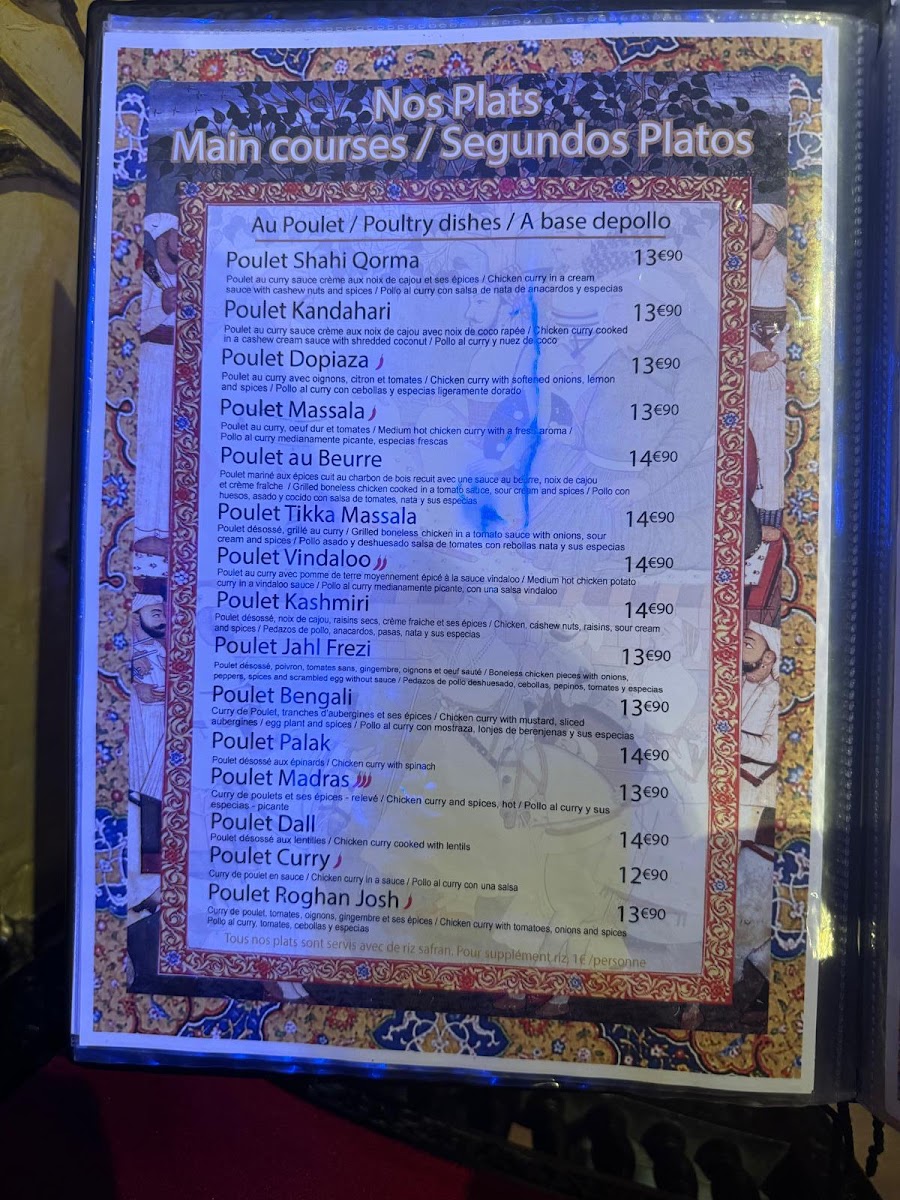 Nos Plats
Main courses / Segundos Platos
Au Poulet / Poultry dishes / A base depollo
Poulet Shahi Qorma 13€90
Poulet au curry sauce crème aux noix de cajou et ses épices / Chicken curry in a cream
sauce with cashew nuts and spices / Pollo al curry con salsa de nata de anacardos y especias
Poulet Kandahari 13€90
Poulet au curry sauce crème aux noix de cajou avec noix de coco rapée / Chicken curry cooked
in a cashew cream sauce with shredded coconut / Pollo al curry y nuez de coco
Poulet Dopiaza 13€90
Poulet au curry avec oignons, citron et tomates / Chicken curry with softened onions, lemon
and spices / Pollo al curry con cebollas y especias ligeramente dorado
Poulet Massala 13€90
Poulet au curry, oeuf dur et tomates / Medium hot chicken curry with a fresh aroma /
Pollo al curry medianamente picante, especias frescas
Poulet au Beurre 14€90
Poulet mariné aux épices cuit au charbon de bois recuit avec une sauce au beurre, noix de cajou
et crème fraîche / Grilled boneless chicken cooked in a tomato sauce, sour cream and spices / Pollo con
huesos, asado y cocido con salsa de tomates, nata y sus especias
Poulet Tikka Massala 14€90
Poulet désossé, grillé au curry / Grilled boneless chicken in a tomato sauce with onions, sour
cream and spices / Pollo asado y deshuesado salsa de tomates con rebollas nata y sus especias
Poulet Vindaloo 14€90
Poulet au curry avec pomme de terre moyennement épicé à la sauce vindaloo / Medium hot chicken potato
curry in a vindaloo sauce / Pollo al curry medianamente picante, con una salsa vindaloo
Poulet Kashmiri 14€90
Poulet désossé, noix de cajou, raisins secs, crème fraiche et ses épices / Chicken, cashew nuts, raisins, sour cream
and spices / Pedazos de pollo, anacardos, pasas, nata y sus especias
Poulet Jahl Frezi 13€90
Poulet désossé, poivron, tomates sans, gingembre, oignons et oeuf sauté / Boneless chicken pieces with onions,
peppers, spices and scrambled egg without sauce / Pedazos de pollo deshuesado, cebollas, pepinos, tomates y especias
Poulet Bengali 13€90
Curry de Poulet, tranches d'aubergines et ses épices / Chicken curry with mustard, sliced
aubergines / egg plant and spices / Pollo al curry con mostraza, lonjes de berenjenas y sus especias
Poulet Palak 14€90
Poulet désossé aux épinards / Chicken curry with spinach
Poulet Madras 13€90
Curry de poulets et ses épices - relevé / Chicken curry and spices, hot / Pollo al curry y sus
especias - picante
Poulet Dall 14€90
Poulet désossé aux lentilles / Chicken curry cooked with lentils
Poulet Curry 12€90
Curry de poulet en sauce / Chicken curry in a sauce / Pollo al curry con una salsa
Poulet Roghan Josh 13€90
Curry de poulet, tomates, oignons, gingembre et ses épices / Chicken curry with tomatoes, onions and spices
Pollo al curry, tomates, cebollas y especias
Tous nos plats sont servis avec de riz safran. Pour supplément riz, 1€ /personne